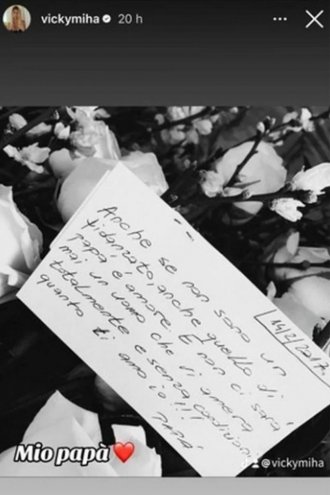 vickymiha 20 h
14/2/2017
Anche se non sono un
fidanzato, anche quello di
papà è amore. E non ci sarà
mai un uomo che ti amerà
totalmente e senza condizioni
quanto ti amo io!!!
Papà
Mio papà
@vickymiha